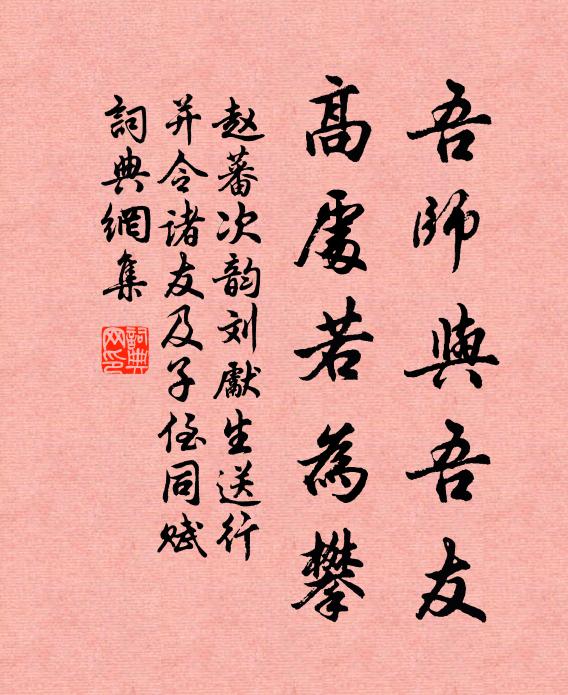 吾師與吾友
高處若為攀
赵蕃次韵刘獻生送行
并令诸友及子侄同赋
詞典網集
詞典网印